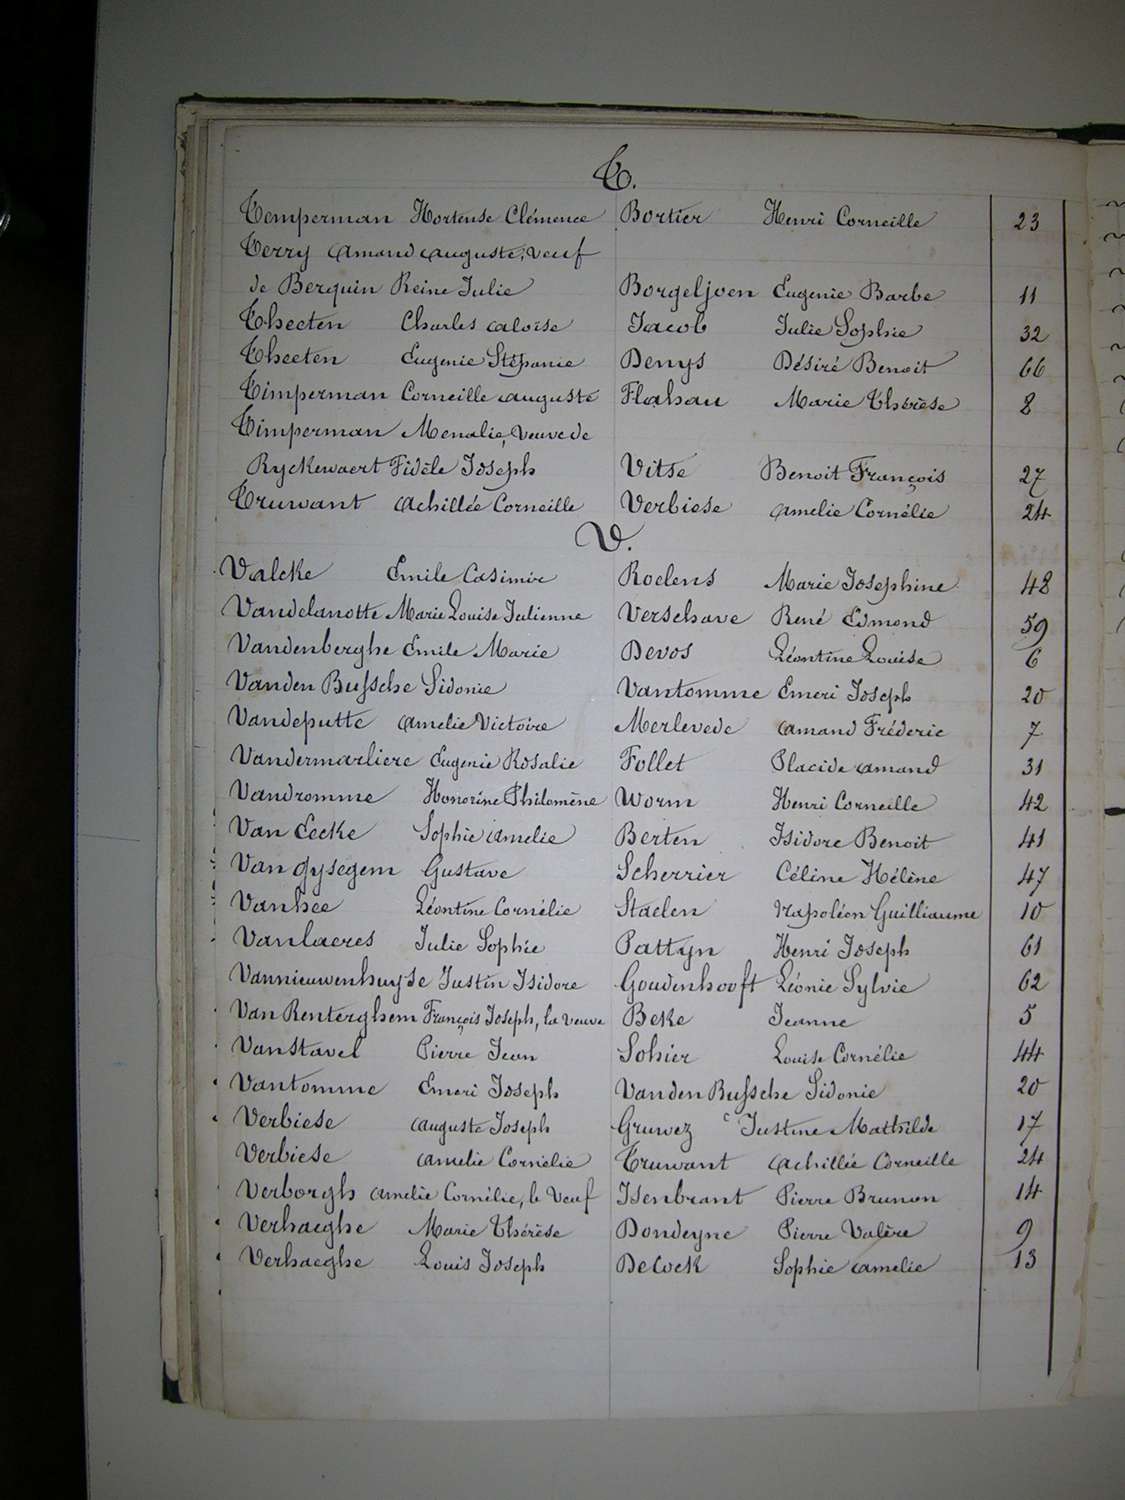 T.
Temperman Hortense Clémence Bortier Henri Corneille 23
Terry Amand Auguste, veuf
de Berquin Reine Julie Borgeljoen Eugenie Barbe 11
Theeten Charles Aloïse Jacob Julie Sophie 32
Theeten Eugenie Stépanie Denys Désiré Benoit 66
Timperman Corneille Auguste Flahau Marie Thérèse 8
Timperman Menalie, Veuve de
Ryckewaert Fidèle Joseph Vitse Benoit François 27
Truwant Achillée Corneille Verbiese Amelie Cornélie 24
V.
Valcke Emile Casimir Roelens Marie Josephine 48
Vandelanotte Marie Louise Julienne Verschave René Edmond 59
Vandenberghe Emile Marie Devos Léontine Louise 6
Vanden Bussche Sidonie Vantomme Emeri Joseph 20
Vandeputte Amelie Victoire Merlevede Amand Fréderic 7
Vandermarliere Eugenie Rosalie Follet Placide Amand 31
Vandromme Honorine Philomène Worm Henri Corneille 42
Van Eecke Sophie Amelie Berten Isidore Benoit 41
Van Gysegem Gustave Scherrier Céline Hélène 47
Vanhee Léontine Cornélie Staelen Napoléon Guilliaume 10
Vanlaeres Julie Sophie Pattyn Henri Joseph 61
Vannieuwenhuyse Justin Isidore Goudenhooft Léonie Sylvie 62
Van Renterghem François Joseph, la veuve Beke Jeanne 5
Vanstavel Pierre Jean Sohier Louise Cornélie 44
Vantomme Emeri Joseph Vanden Bussche Sidonie 20
Verbiese Auguste Joseph Gruwez Justine Mathilde 17
Verbiese Amelie Cornélie Truwant Achillée Corneille 24
Verborgh Amelie Cornélie, le Veuf Isenbrant Pierre Brunon 14
Verhaeghe Marie Thérèse Dondeyne Pierre Valère 9
Verhaeghe Louis Joseph DeCock Sophie Amelie 13